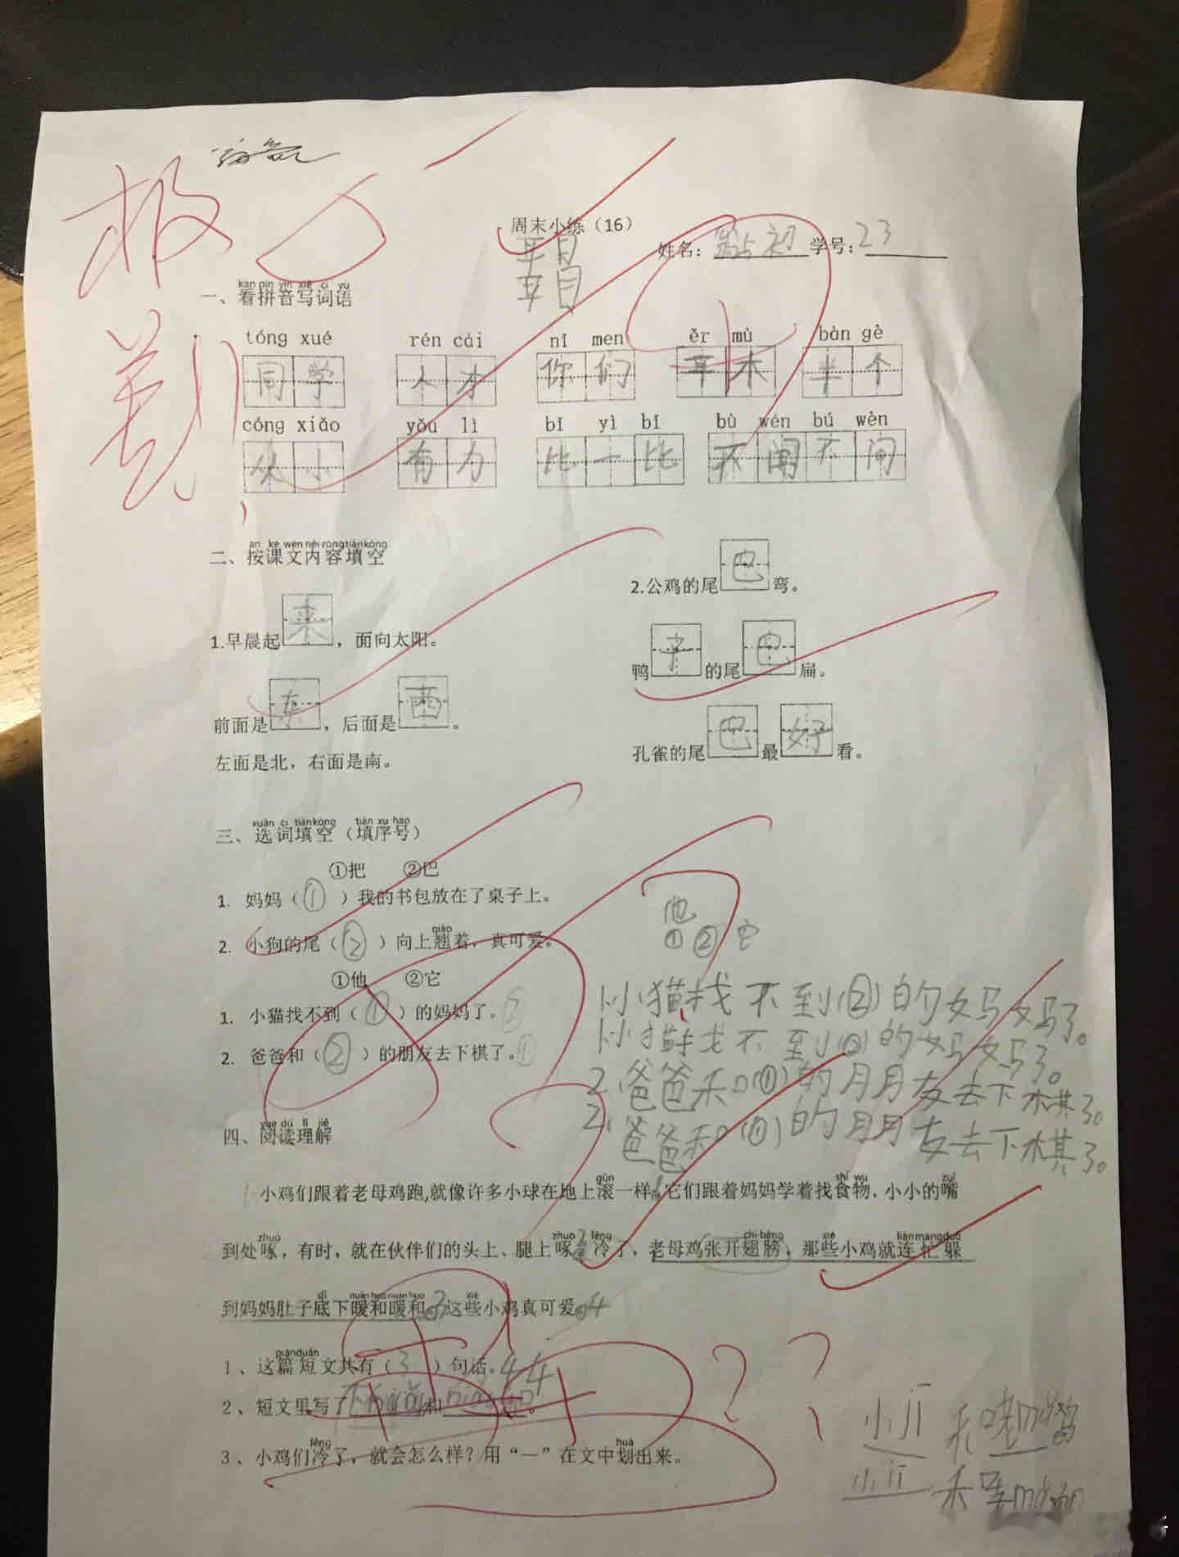 极
差!
周末小练（16）
姓名： 初 学号：23
kàn pīn yīn xiě cí yǔ
一、看拼音写词语
tóng xué rén cái nǐ men ěr mù bàn gè
同学 人才 你们 耳木 半个
cóng xiǎo yǒu lì bǐ yì bǐ bù wén bú wèn
从小 有力 比一比 不闻不问
àn kè wén nèi róng tián kòng
二、按课文内容填空
1.早晨起来，面向太阳。
前面是东，后面是西。
左面是北，右面是南。
2.公鸡的尾巴弯。
鸭子的尾巴扁。
孔雀的尾巴最好看。
xuǎn cí tián kòng tián xù hào
三、选词填空（填序号）
①把 ②巴
1. 妈妈（①）我的书包放在了桌子上。
qiào
2. 小狗的尾（②）向上翘着，真可爱。
①他 ②它
1. 小猫找不到（①）的妈妈了。②
2. 爸爸和（②）的朋友去下棋了。①
他
① ② 它
1.小猫找不到(②)的妈妈了。
1.小猫找不到(②)的妈妈了。
2.爸爸和(①)的朋友去下棋了。
2.爸爸和(①)的朋友去下棋了。
yuè dú lǐ jiě
四、阅读理解
gǔn shí wù zuǐ
小鸡们跟着老母鸡跑,就像许多小球在地上滚一样。它们跟着妈妈学着找食物，小小的嘴
zhuó zhuó lěng chì bǎng xiē lián máng duǒ
到处啄，有时，就在伙伴们的头上、腿上啄。冷了，老母鸡张开翅膀，那些小鸡就连忙躲
dǐ nuǎn huo nuǎn huo xiē
到妈妈肚子底下暖和暖和。这些小鸡真可爱。4
piān duǎn
1、这篇短文共有（3）句话。4 4
2、短文里写了 和 。
lěng huà
3、小鸡们冷了，就会怎么样？用“—”在文中划出来。
? ?
小jī 和
小jī 和